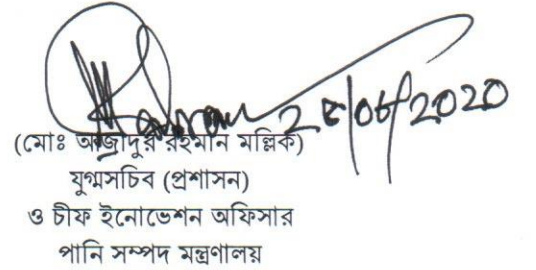 ২৮/০৬/2020
(মোঃ আজাদুর রহমান মল্লিক)
যুগ্মসচিব (প্রশাসন)
ও চীফ ইনোভেশন অফিসার
পানি সম্পদ মন্ত্রণালয়